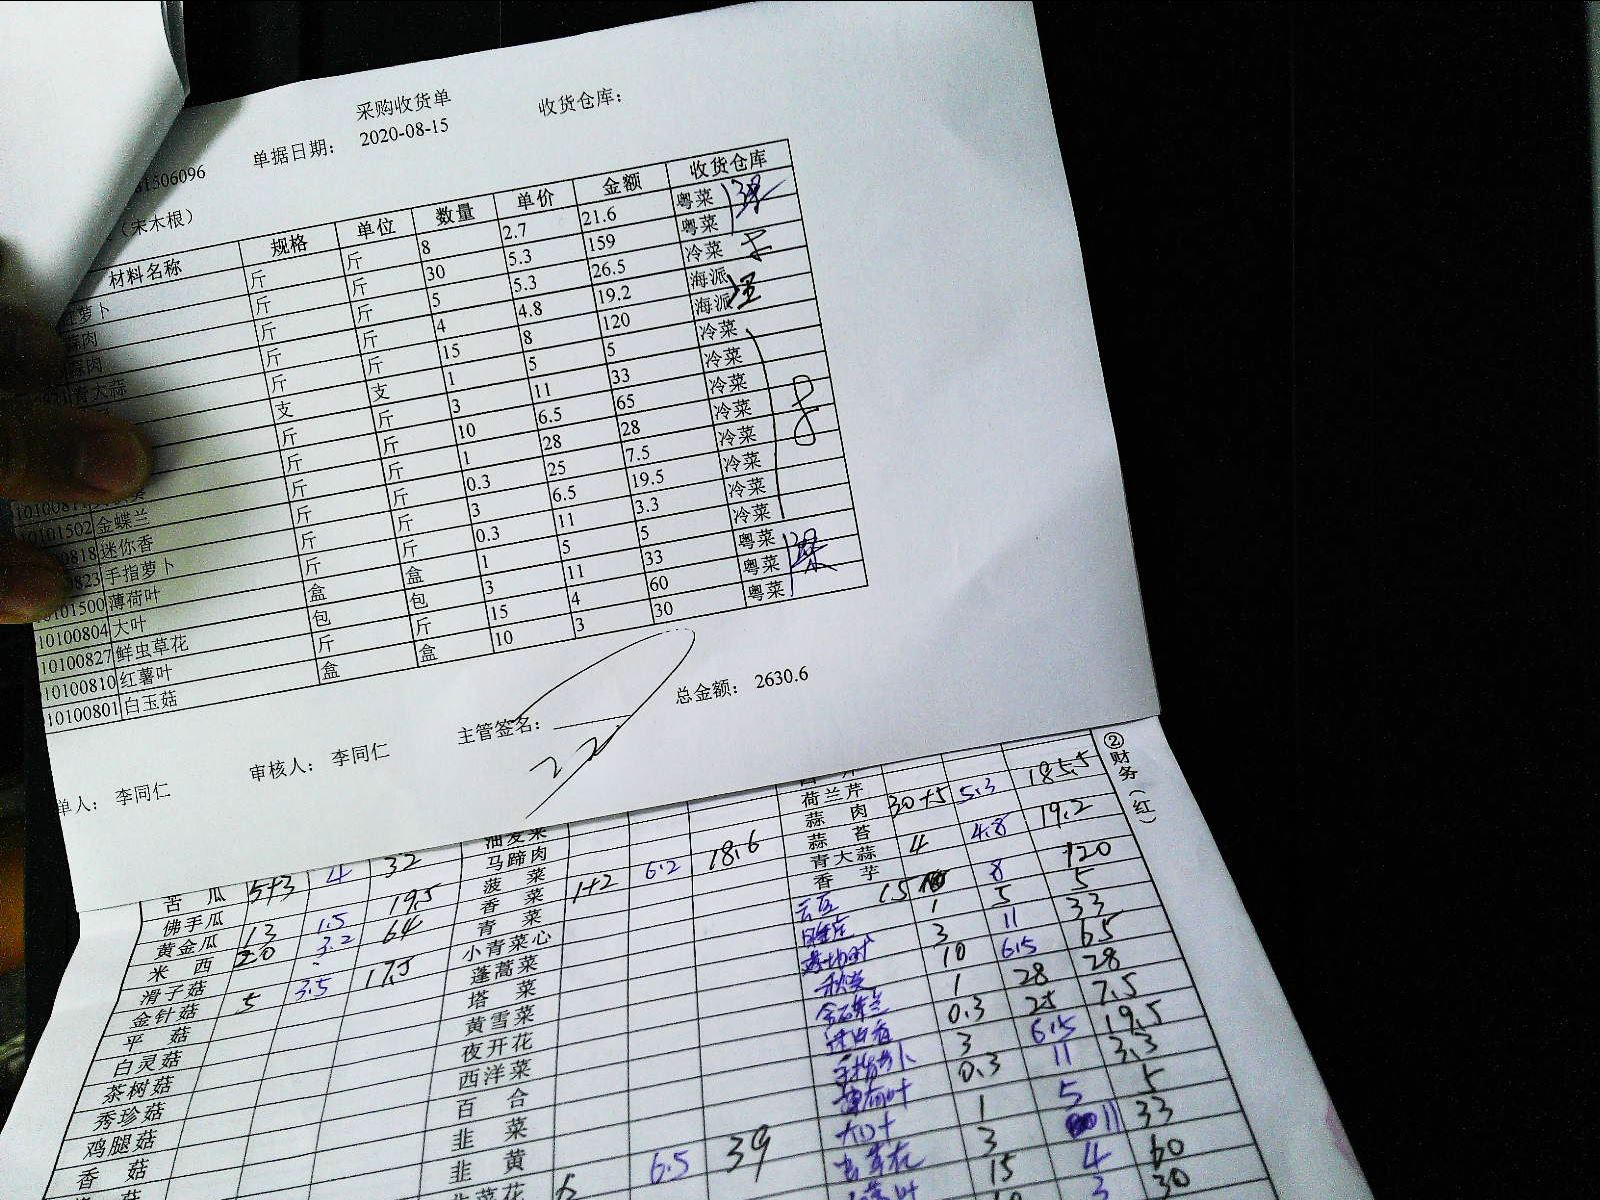 采购收货单
收货仓库：
单据日期： 2020-08-15
1506096
（宋木根）
材料名称 规格 单位 数量 单价 金额 收货仓库
萝卜 斤 斤 8 2.7 21.6 粤菜
蒜肉 斤 斤 30 5.3 159 粤菜
蒜肉 斤 斤 5 5.3 26.5 冷菜
青大蒜 斤 斤 4 4.8 19.2 海派
斤 斤 15 8 120 海派
支 支 1 5 5 冷菜
斤 斤 3 11 33 冷菜
斤 斤 10 6.5 65 冷菜
01502 金蝶兰 斤 斤 1 28 28 冷菜
0818 迷你香 斤 斤 0.3 25 7.5 冷菜
0823 手指萝卜 斤 斤 3 6.5 19.5 冷菜
0101500 薄荷叶 斤 斤 0.3 11 3.3 冷菜
10100804 大叶 盒 盒 1 5 5 冷菜
10100827 鲜虫草花 包 包 3 11 33 粤菜
10100810 红薯叶 斤 斤 15 4 60 粤菜
10100801 白玉菇 盒 盒 10 3 30 粤菜
单人： 李同仁 审核人： 李同仁 主管签名： 总金额： 2630.6
②财务（红）
荷兰芹
油麦菜 蒜 肉 30+5 5.3 185.5
苦 瓜 5+3 4 32 马蹄肉 蒜 苔
佛手瓜 菠 菜 青大蒜 4 4.8 19.2
黄金瓜 13 1.5 19.5 香 菜 1+2 6.2 18.6 香 芋 15 8 120
米 西 20 3.2 64 青 菜 1 5 5
滑子菇 小青菜心 3 11 33
金针菇 5 3.5 17.5 蓬蒿菜 10 6.5 65
平 菇 塔 菜 1 28 28
白灵菇 黄雪菜 0.3 25 7.5
茶树菇 夜开花 手指萝卜 3 6.5 19.5
秀珍菇 西洋菜 薄荷叶 0.3 11 3.3
鸡腿菇 百 合 大叶 1 5 5
香 菇 韭 菜 虫草花 3 11 33
韭 黄 6.5 39 15 4 60
3 30